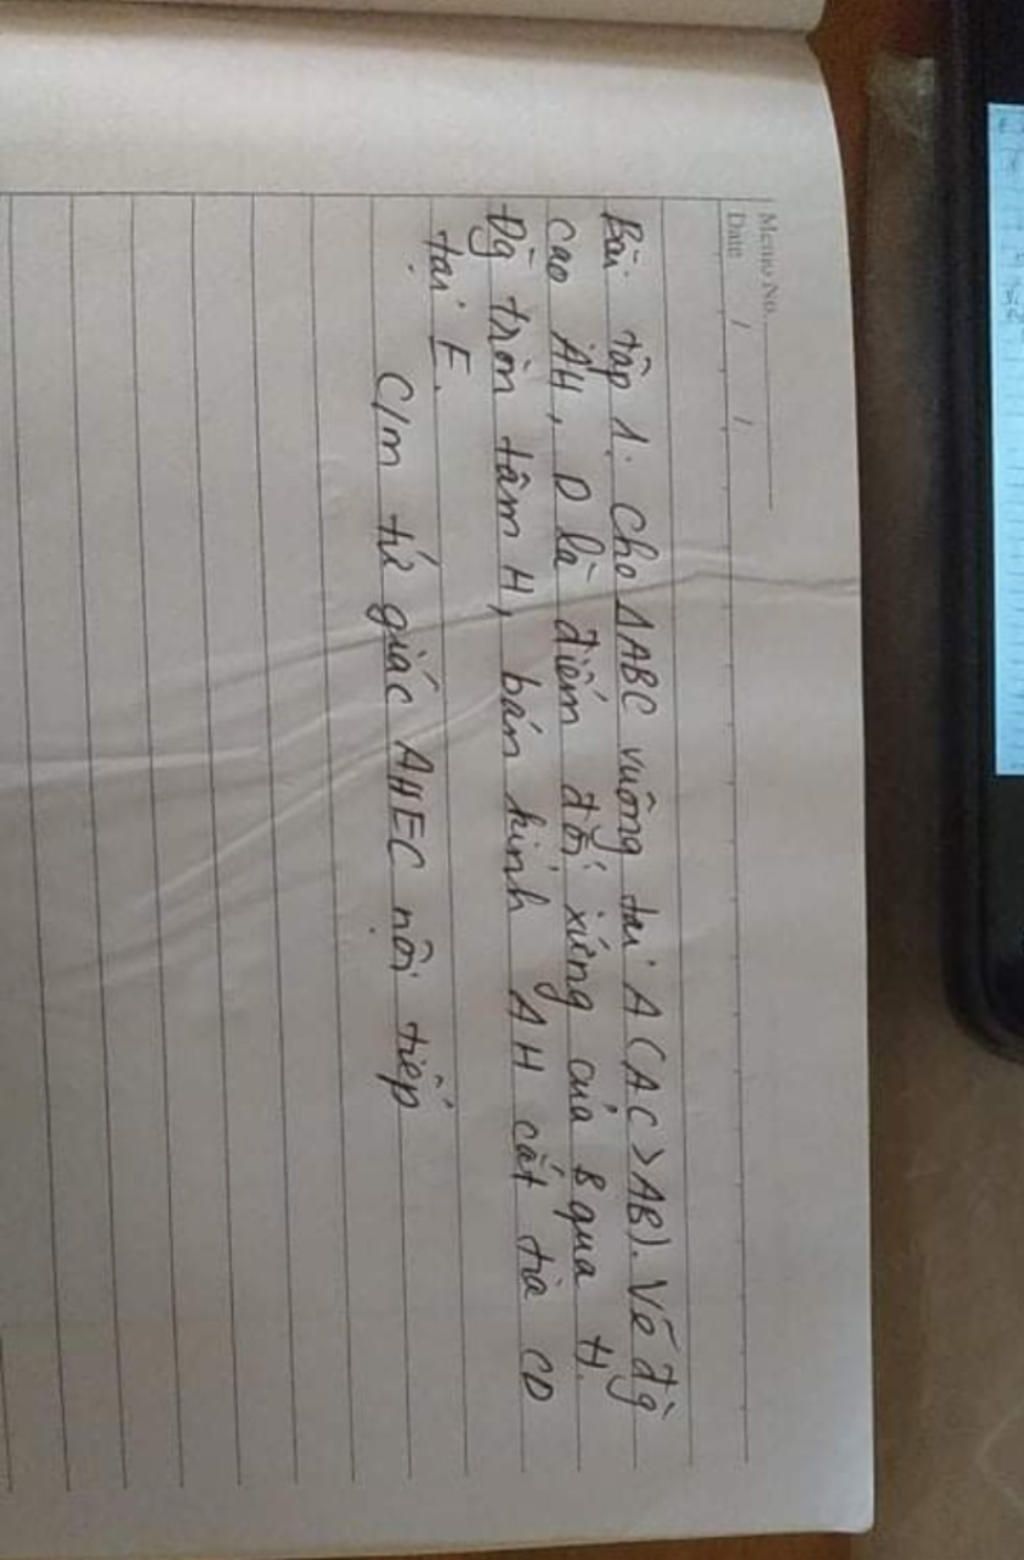 Memo No.
Date / /
Bài tập 1. Cho ΔABC vuông tại A (AC > AB). Vẽ đg
cao AH, D là điểm đối xứng của B qua H.
Đg tròn tâm H, bán kính AH cắt tia CD
tại E.
C/m tứ giác AHEC nội tiếp